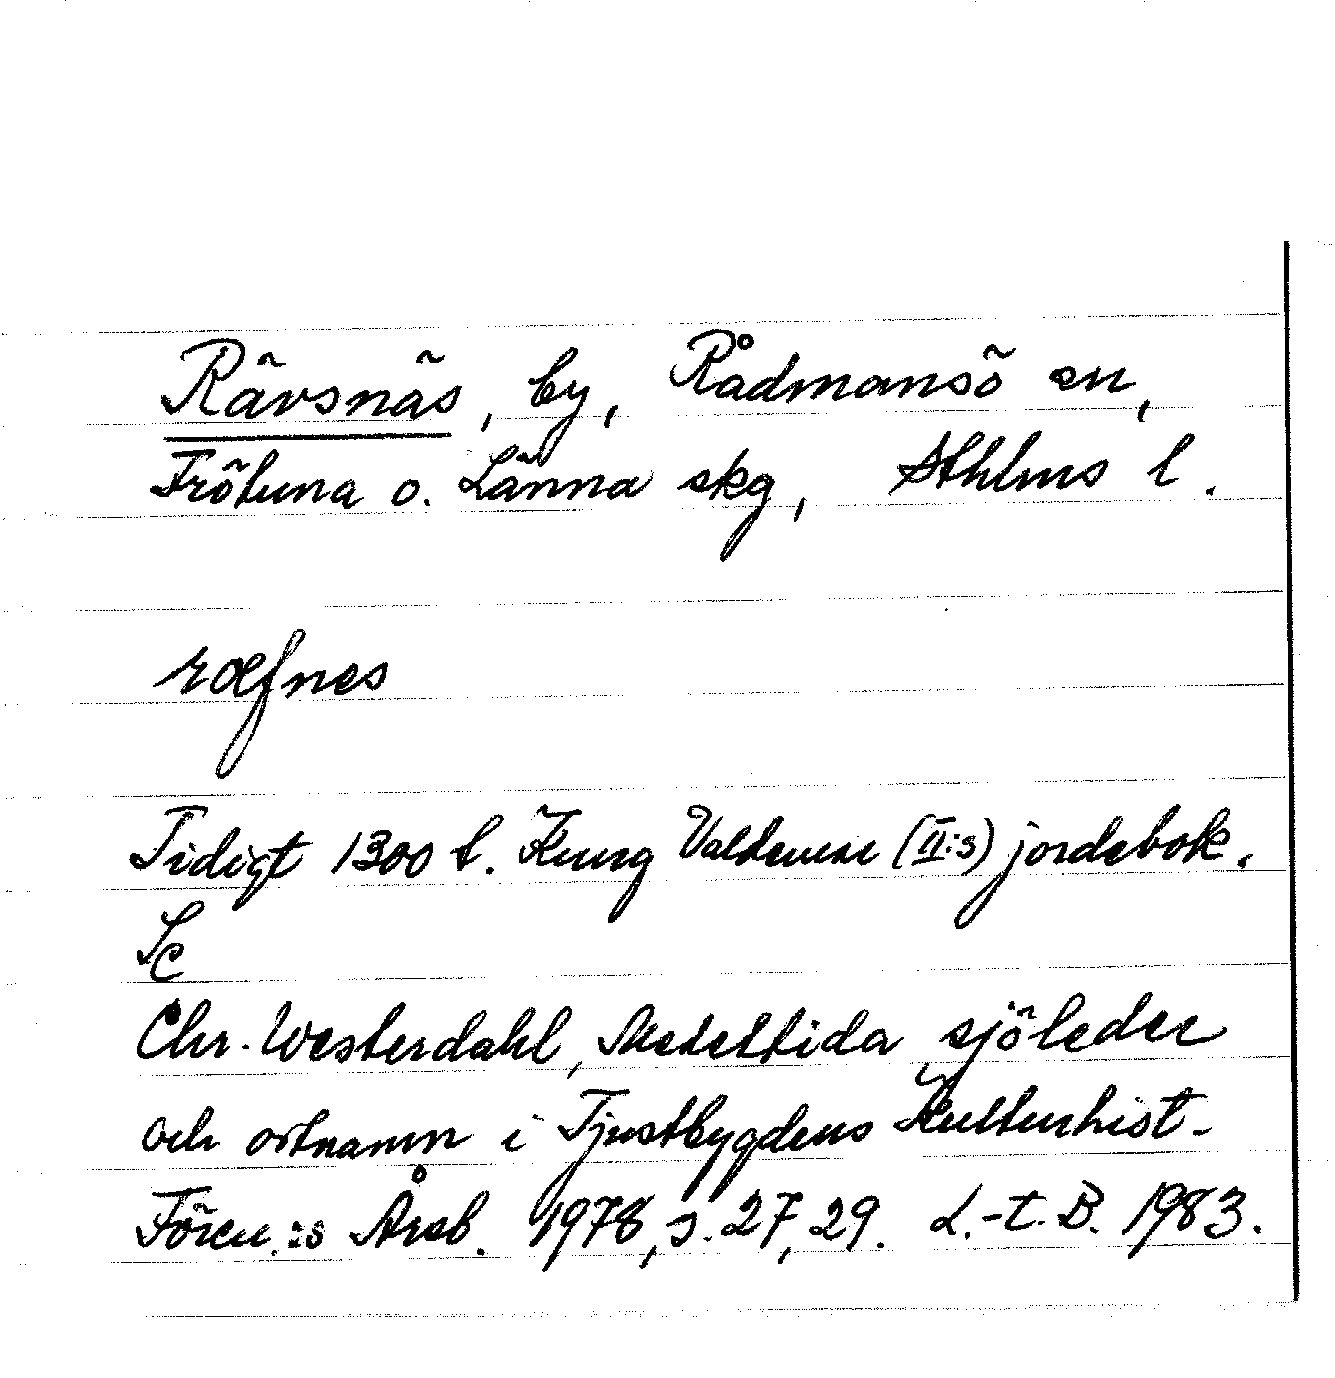 Rävsnäs, by, Rådmansö sn,
Frötuna o. Länna skg, Sthlms l.
ræfnes
Tidigt 1300 t. Kung Valdemar (II:s) jordebok.
Se
Chr. Westerdahl, Medeltida sjöleder
och ortnamn i Tjustbygdens Kulturhist-
Fören.:s Årsb. 1978, s. 27, 29. L.-t. B. 1983.